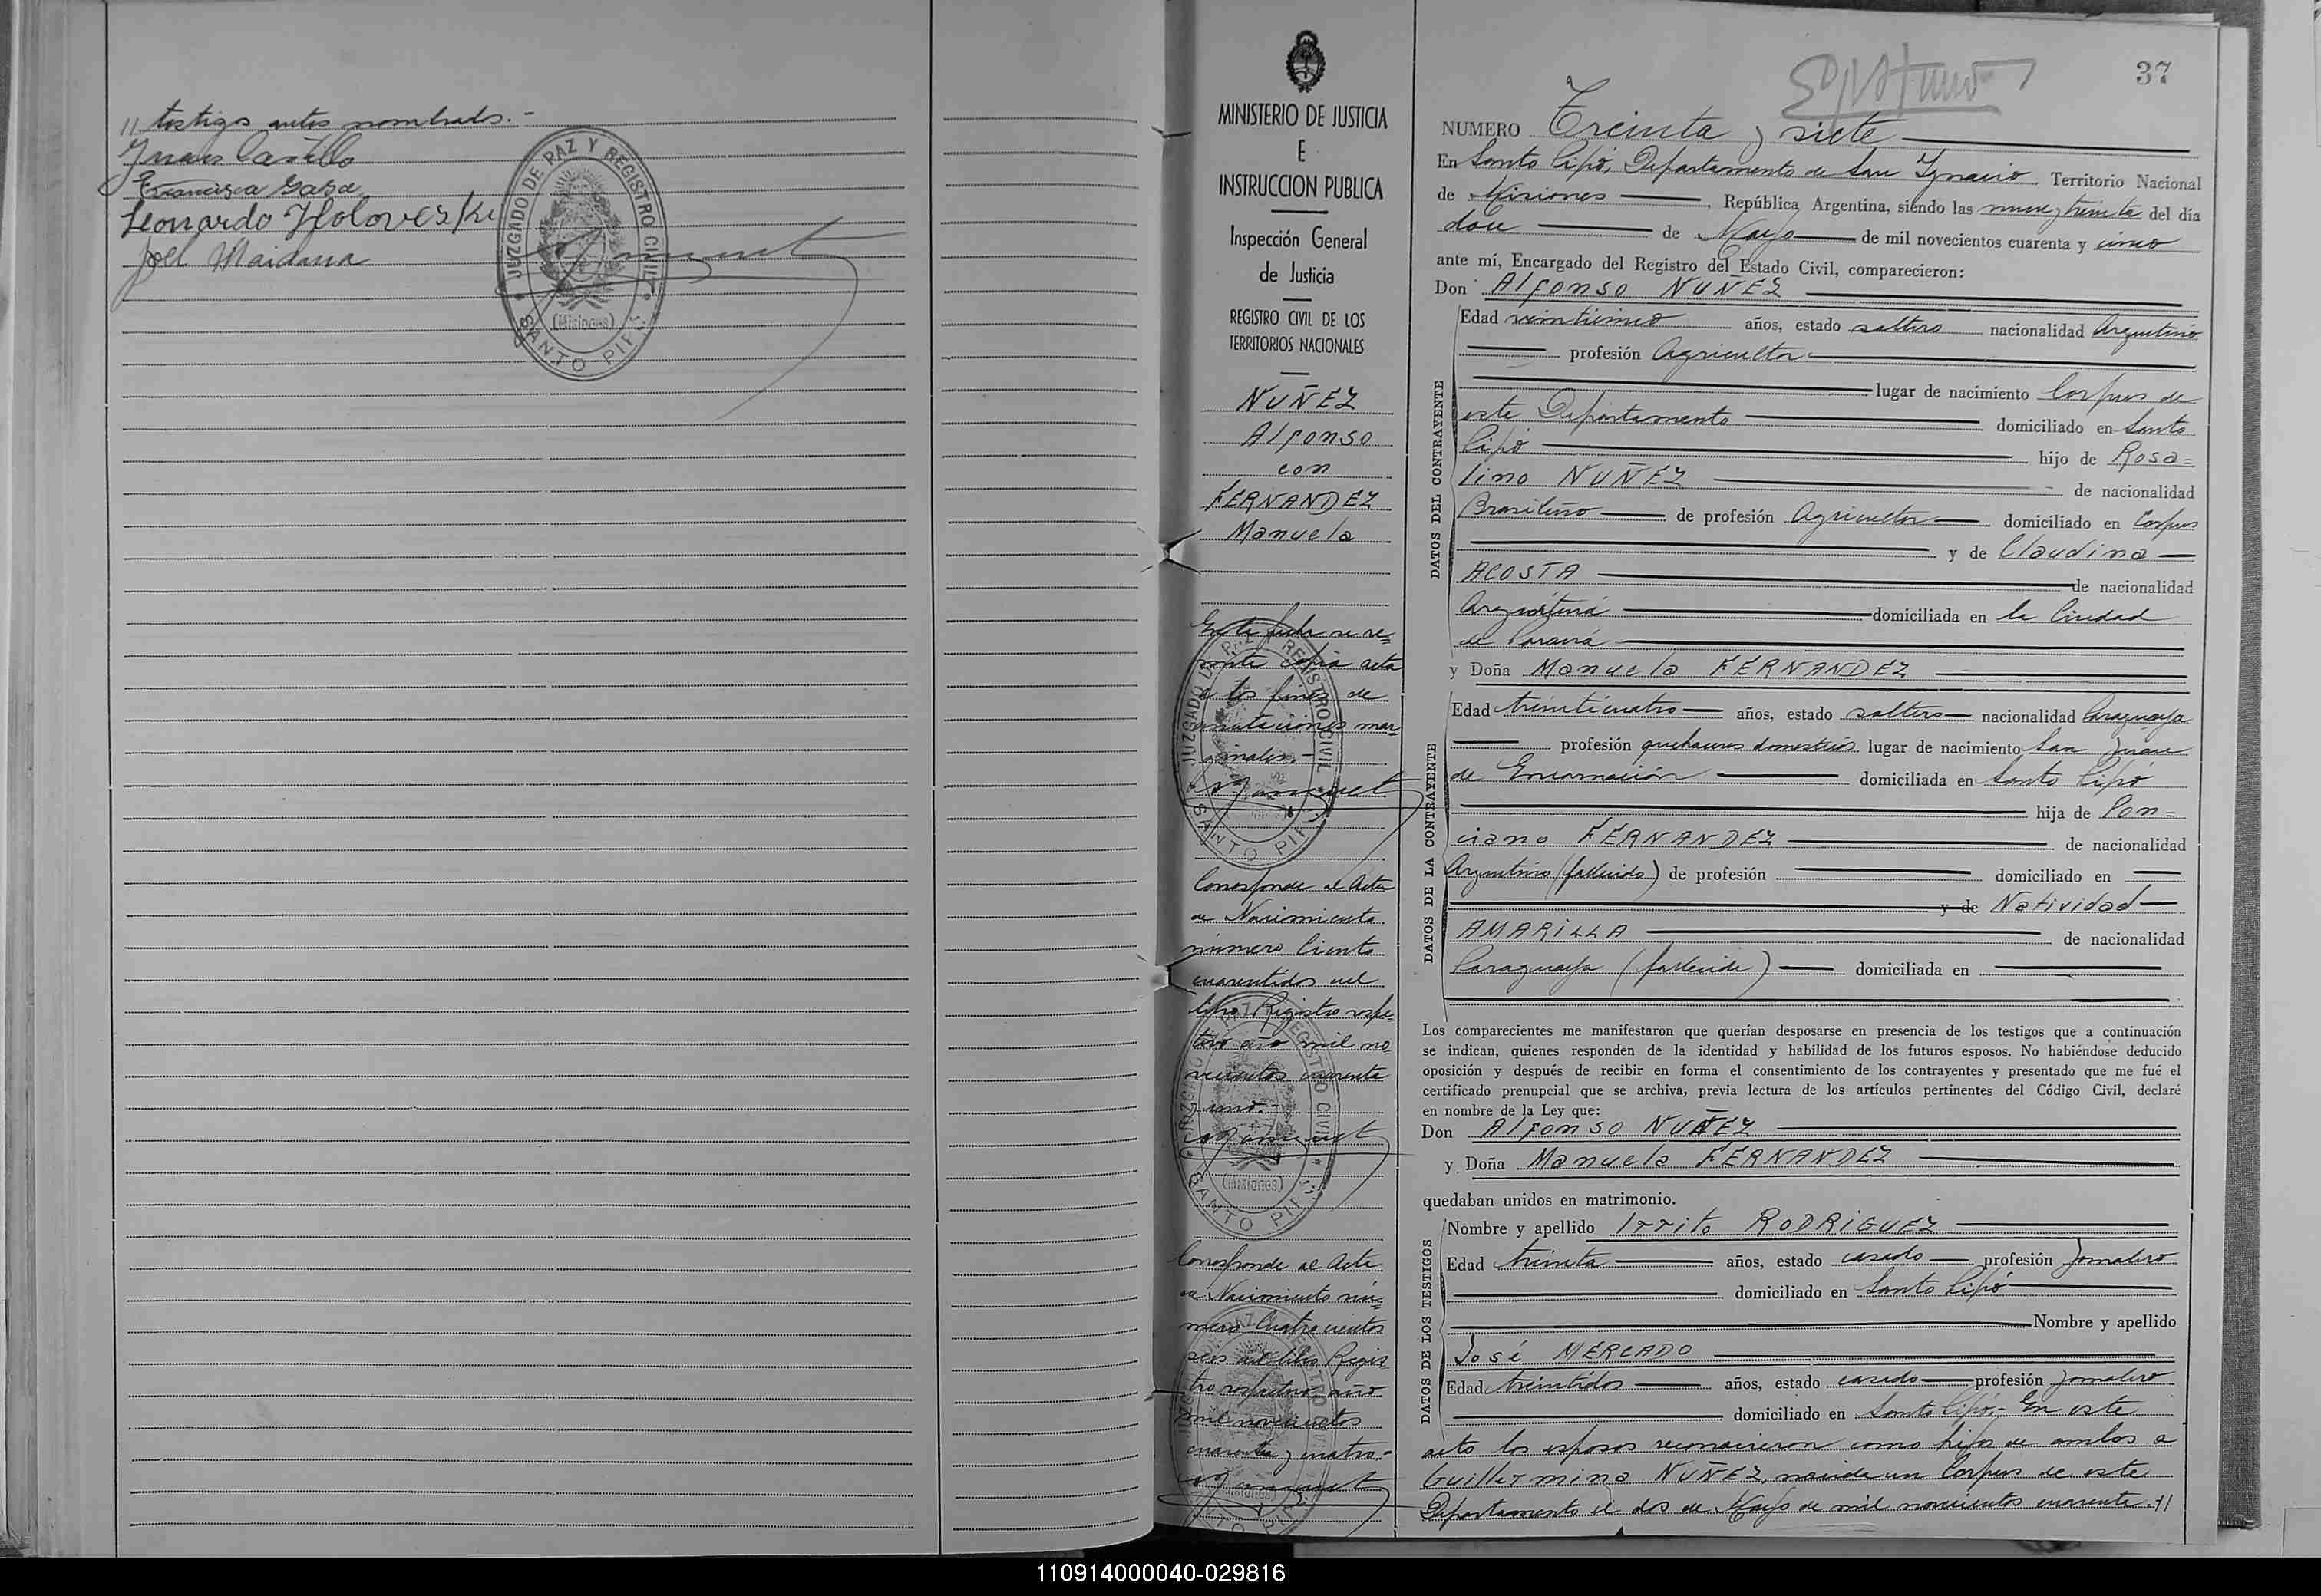 // testigos antes nombrados.-
Juan Castillo
Francisca Sosa
Leonardo Holoveski
Joel Maidana
JUZGADO DE PAZ Y REGISTRO CIVIL
(Misiones)
SANTO PIPÓ
MINISTERIO DE JUSTICIA
E
INSTRUCCION PUBLICA
Inspección General
de Justicia
REGISTRO CIVIL DE LOS
TERRITORIOS NACIONALES
NUÑEZ
Alfonso
con
FERNANDEZ
Manuela
En la fecha se re=
mite copia acta
a los fines de
anotaciones mar=
ginales.-
JUZGADO DE PAZ Y REGISTRO CIVIL
SANTO PIPÓ
Corresponde al Acta
de Nacimiento
número Ciento
cuarentidos del
libro Registro respec=
tivo año mil no=
vecientos cuarenta
y uno.-
REGISTRO CIVIL
(Misiones)
SANTO PIPÓ
Corresponde al Acta
de Nacimiento nú=
mero Cuatrocientos
seis del libro Regis=
tro respectivo año
mil novecientos
cuarenta y cuatro.-
37
NUMERO Treinta y siete
En Santo Pipó, Departamento de San Ignacio Territorio Nacional
de Misiones, República Argentina, siendo las nueve y treinta del día
doce de Mayo de mil novecientos cuarenta y cinco
ante mí, Encargado del Registro del Estado Civil, comparecieron:
Don Alfonso NUÑEZ
DATOS DEL CONTRAYENTE
Edad veinticinco años, estado soltero nacionalidad Argentino
profesión Agricultor
lugar de nacimiento Corpus de
este Departamento domiciliado en Santo
Pipó hijo de Rosa=
lino NUÑEZ de nacionalidad
Brasileño de profesión Agricultor domiciliado en Corpus
y de Claudina
ACOSTA de nacionalidad
Argentina domiciliada en la Ciudad
de Paraná
y Doña Manuela FERNANDEZ
DATOS DE LA CONTRAYENTE
Edad treinticuatro años, estado soltera nacionalidad Paraguaya
profesión quehaceres domésticos lugar de nacimiento San Juan
de Encarnación domiciliada en Santo Pipó
hija de Pon=
ciano FERNANDEZ de nacionalidad
Argentino (fallecido) de profesión domiciliado en
y de Natividad
AMARILLA de nacionalidad
Paraguaya (fallecida) domiciliada en
Los comparecientes me manifestaron que querían desposarse en presencia de los testigos que a continuación
se indican, quienes responden de la identidad y habilidad de los futuros esposos. No habiéndose deducido
oposición y después de recibir en forma el consentimiento de los contrayentes y presentado que me fué el
certificado prenupcial que se archiva, previa lectura de los artículos pertinentes del Código Civil, declaré
en nombre de la Ley que:
Don Alfonso NUÑEZ
y Doña Manuela FERNANDEZ
quedaban unidos en matrimonio.
DATOS DE LOS TESTIGOS
Nombre y apellido Irrito RODRIGUEZ
Edad treinta años, estado casado profesión Jornalero
domiciliado en Santo Pipó
Nombre y apellido
José MERCADO
Edad treintidos años, estado casado profesión Jornalero
domiciliado en Santo Pipó.- En este
acto los esposos reconocieron como hijos de ambos a
Guillermina NUÑEZ, nacida en Corpus de este
Departamento el dos de Mayo de mil novecientos cuarenta //
110914000040-029816